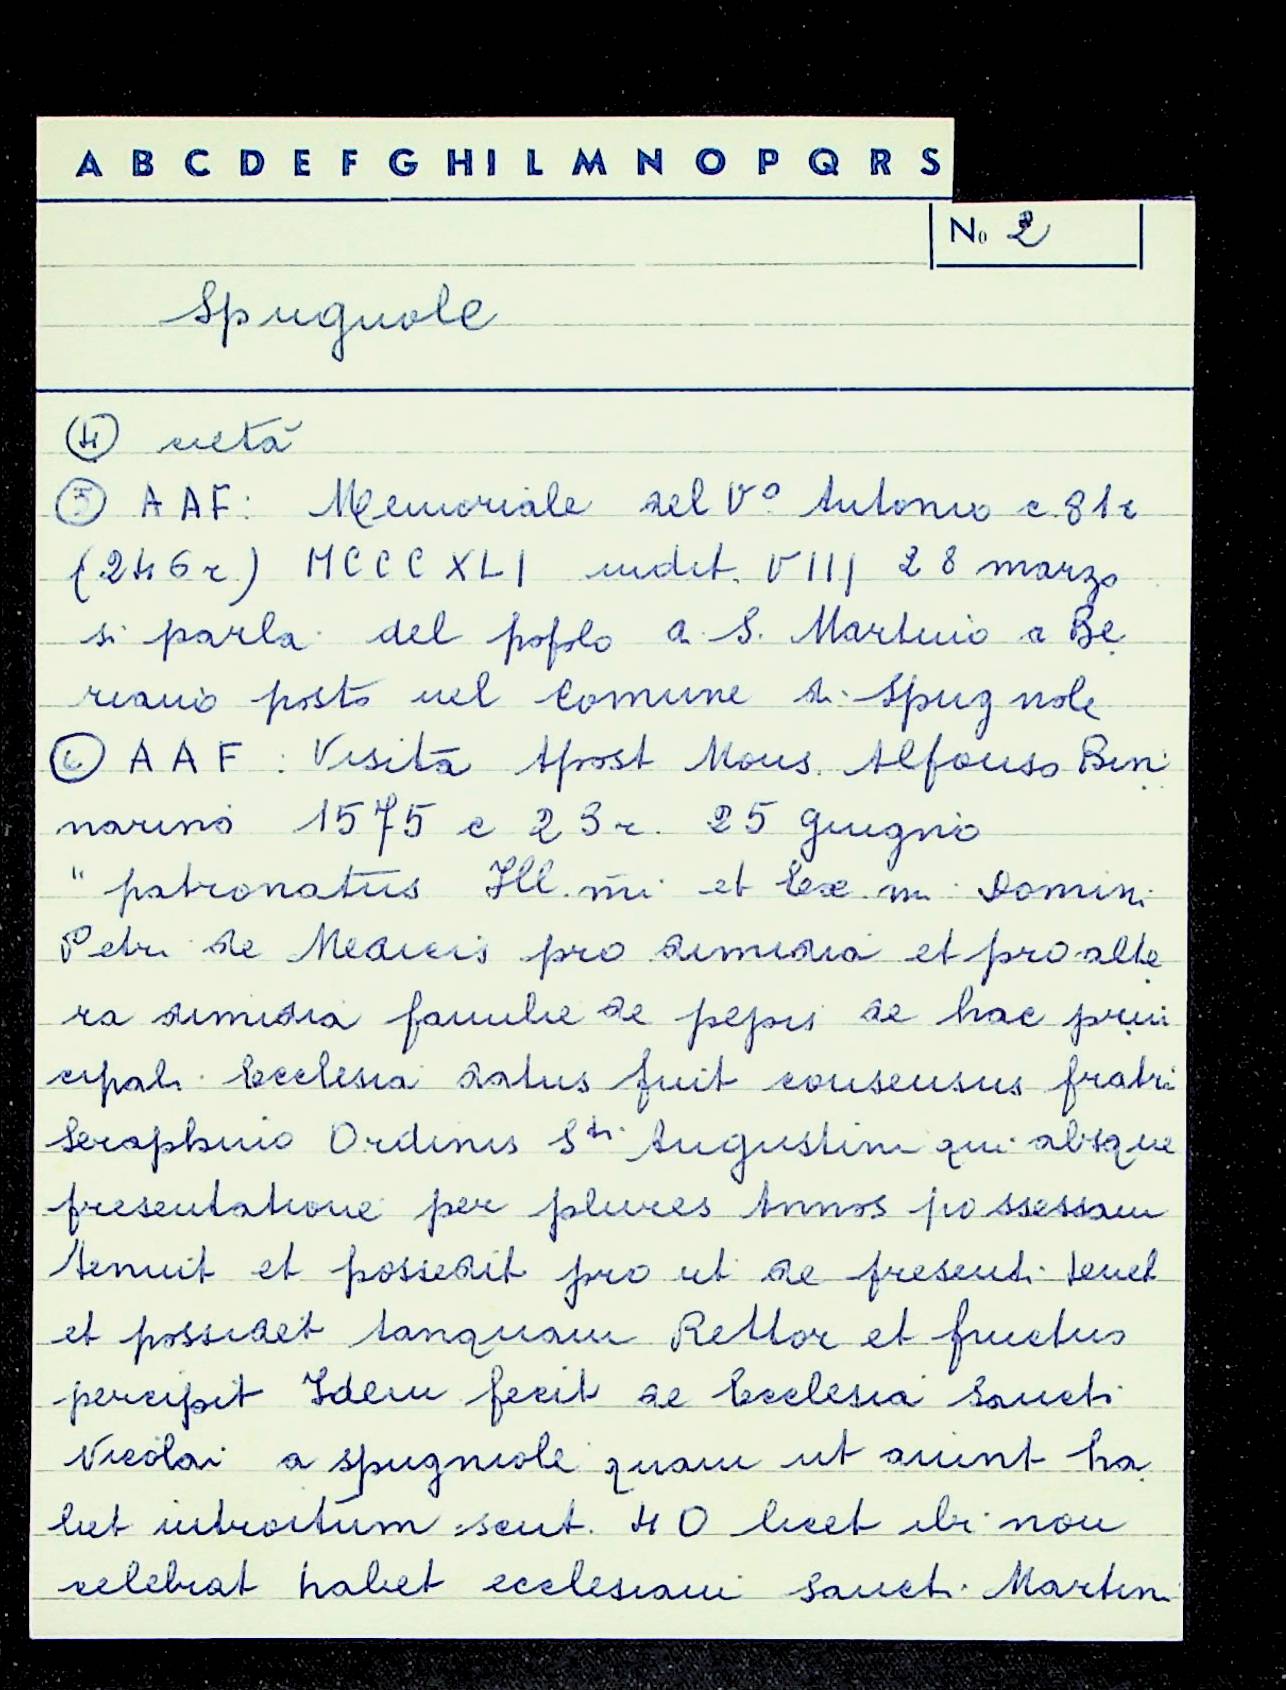 A B C D E F G H I L M N O P Q R S
No 2
Spugnole
④ cietà
⑤ AAF: Memoriale del V° Antonio c. 81r
(246r) MCCCXLI indit. VIII 28 marzo
si parla del popolo a S. Martino a Be
riano posto nel Comune di Spugnole
⑥ AAF: Visita Apost Mons. Alfonso Bin
narino 1575 c 23r. 25 giugno
" patronatus Ill.mi et Exc.mi Domini
Petri de Medicis pro dimidia et pro alte
ra dimidia familie de pepis de hac prin
cipali Ecclesia datus fuit consensus fratri
Seraphino Ordinis Sti Augustini qui absque
presentatione per plures Annos possessam
tenuit et possedit pro ut de presenti tenet
et possidet tanquam Rettor et fructus
percipit Idem fecit de Ecclesia Sancti
Nicolai a spugniole quam ut aiunt ha
bet introitum scut. 40 licet ibi non
celebrat habet ecclesiam Sancti Martini